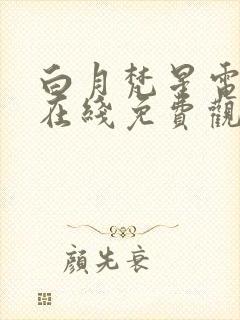 白月梵星電
在綫免費觀
顏先衰